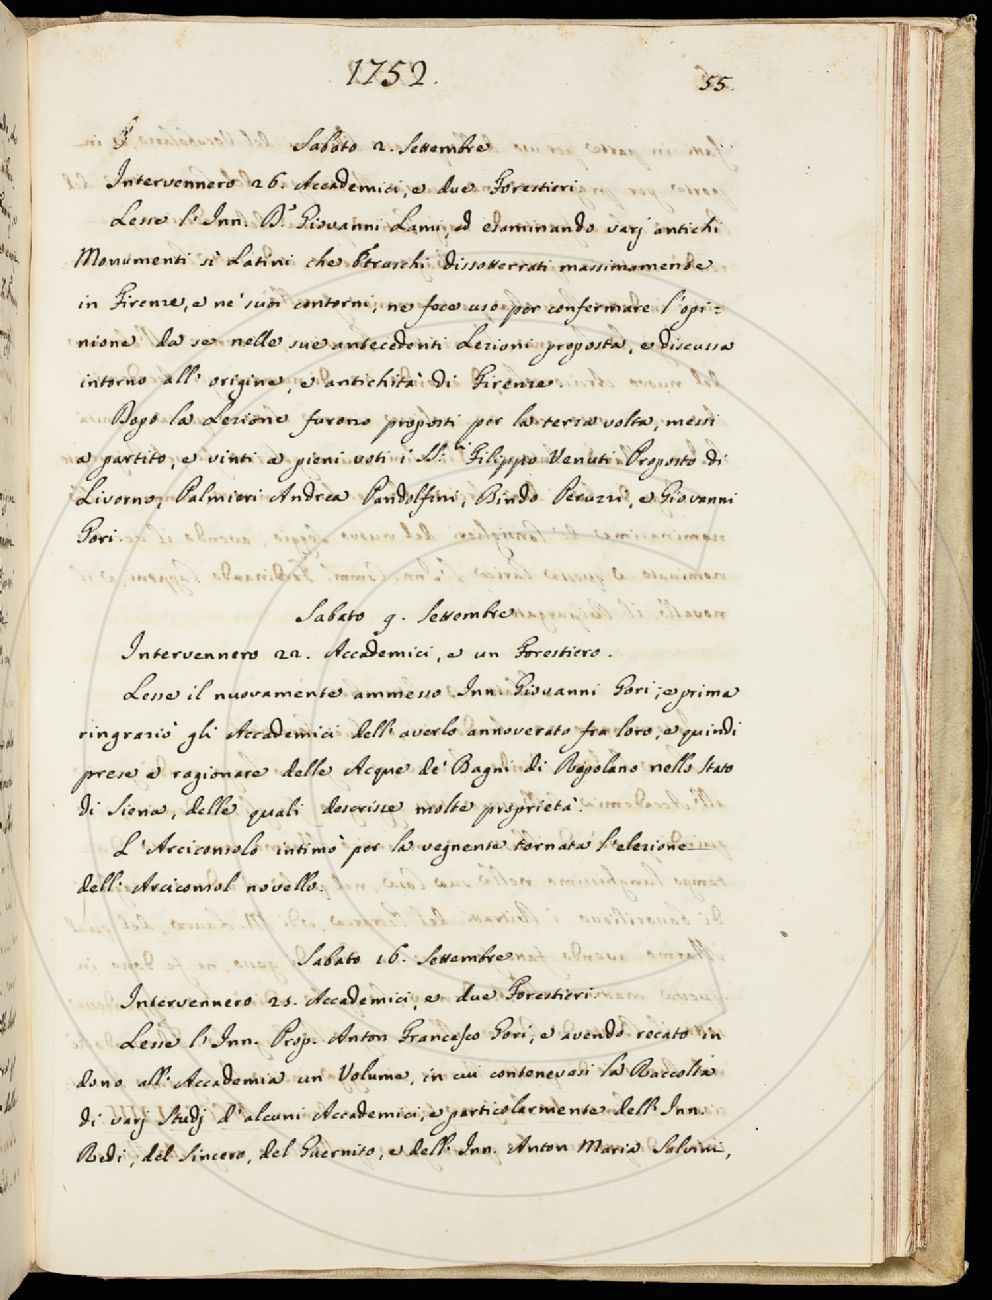 1752.
55.
Sabato 2. Settembre
Intervennero 26. Accademici, e due Forestieri.
Lesse l'Inn. D.r Giovanni Lami, ed esaminando varj antichi
Monumenti sì Latini che Etruschi dissotterrati massimamente
in Firenze, e ne' suoi contorni, ne fece uso per confermare l'opi=
nione da se nelle sue antecedenti Lezioni proposta, e discussa
intorno all'origine, e antichità di Firenze.
Dopo la Lezione furono proposti per la terza volta, messi
a partito, e vinti a pieni voti i SS.ri Filippo Venuti Proposto di
Livorno, Palmieri Andrea Pandolfini, Bindo Peruzzi, e Giovanni
Gori.
Sabato 9. Settembre
Intervennero 22. Accademici, e un Forestiero.
Lesse il nuovamente ammesso Inn. Giovanni Gori; e prima
ringraziò gli Accademici dell'averlo annoverato fra loro, e quindi
prese a ragionare delle Acque de' Bagni di Rapolano nello Stato
di Siena, delle quali descrisse molte proprietà.
L'Arciconsolo intimò per la vegnente tornata l'elezione
dell'Arciconsol novello.
Sabato 16. Settembre
Intervennero 21. Accademici, e due Forestieri.
Lesse l'Inn. Prop. Anton Francesco Gori, e avendo recato in
dono all'Accademia un Volume, in cui contenevasi la Raccolta
di varj Studj d'alcuni Accademici, e particolarmente dell'Inn.
Redi, del Sincero, del Guernito, e dell'Inn. Anton Maria Salvini,